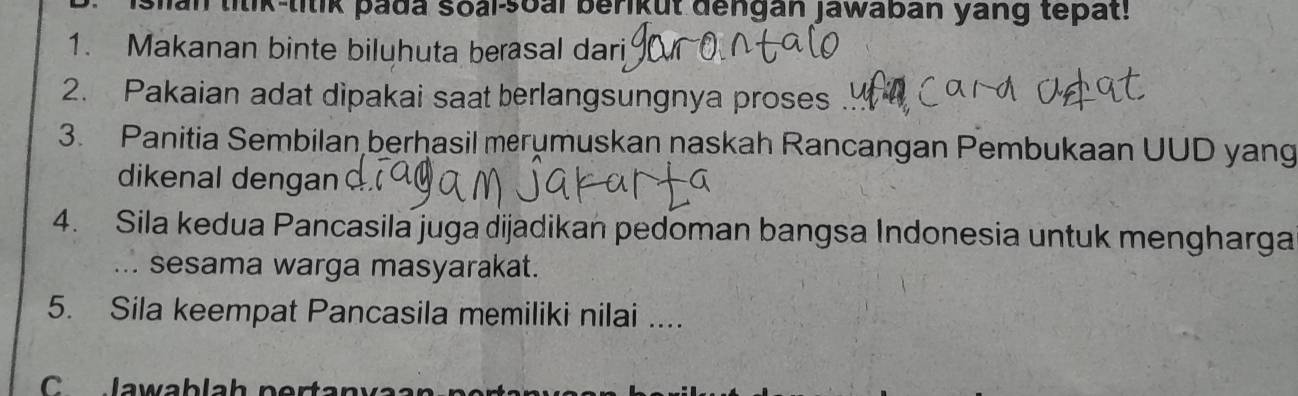 B. Isilah titik-titik pada soal-soal berikut dengan jawaban yang tepat!
1. Makanan binte biluhuta berasal dari garontalo
2. Pakaian adat dipakai saat berlangsungnya proses .... upacara adat
3. Panitia Sembilan berhasil merumuskan naskah Rancangan Pembukaan UUD yang
dikenal dengan diagam jakarta
4. Sila kedua Pancasila juga dijadikan pedoman bangsa Indonesia untuk mengharga
... sesama warga masyarakat.
5. Sila keempat Pancasila memiliki nilai ....
C. Jawablah pertanyaan